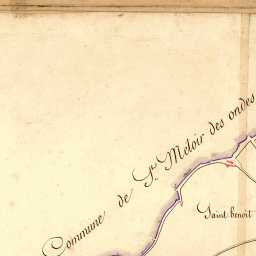 Commune de St. Meloir des ondes
Saint benoit